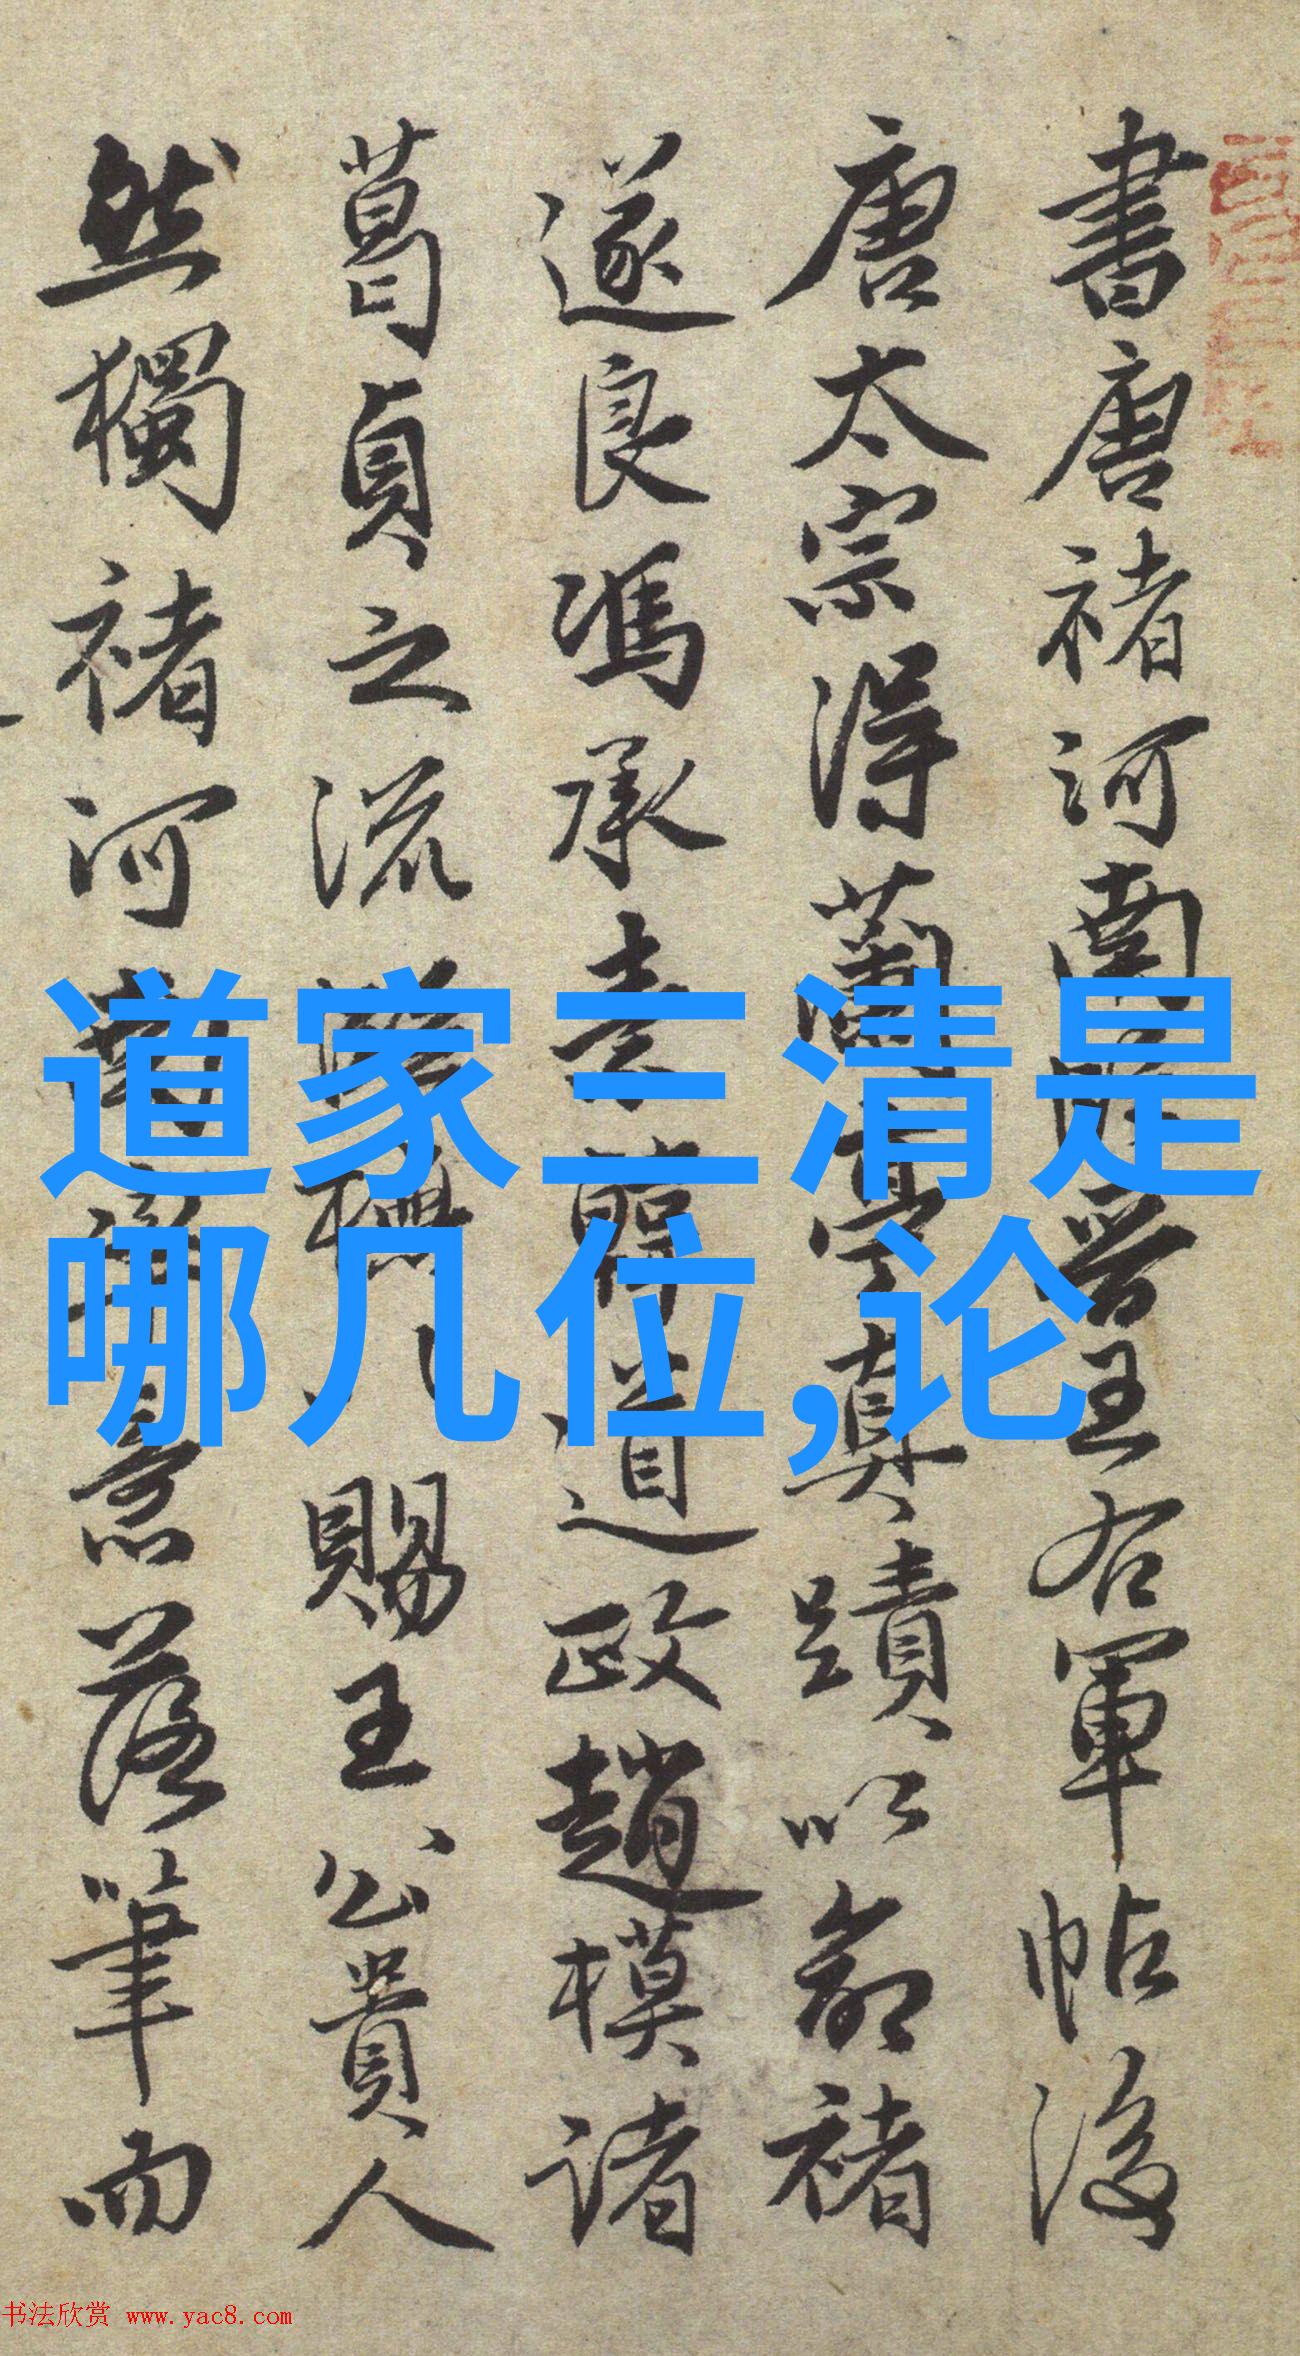 書唐褚河南臨晉王右軍帖後
唐太宗得蘭亭真蹟以命褚
遂良馮承素韓道政趙模諸
葛貞之流
賜王公貴人
然獨褚河南
意落筆而
道家三清是
哪几位,论
书法欣赏 www.yac8.com